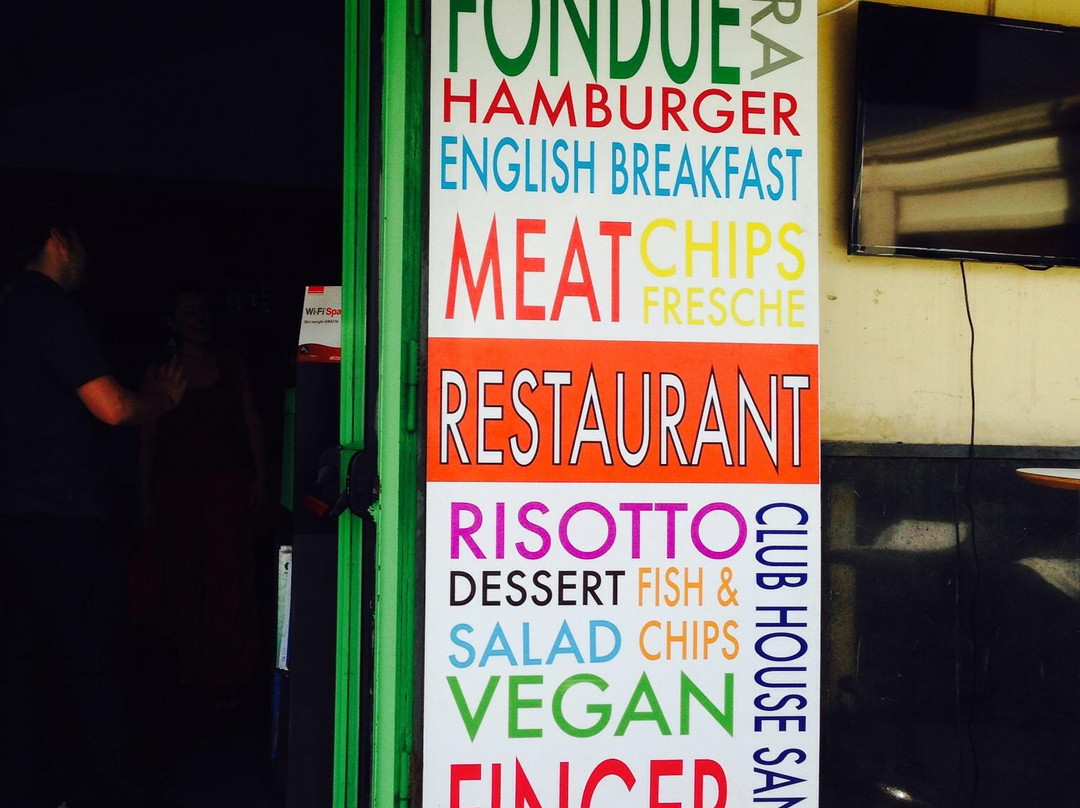 FONDUE
RA
HAMBURGER
ENGLISH BREAKFAST
MEAT
CHIPS
FRESCHE
RESTAURANT
RISOTTO
DESSERT
FISH &
CHIPS
SALAD
VEGAN
FINGER
CLUB HOUSE SAN
Wi-Fi Spa